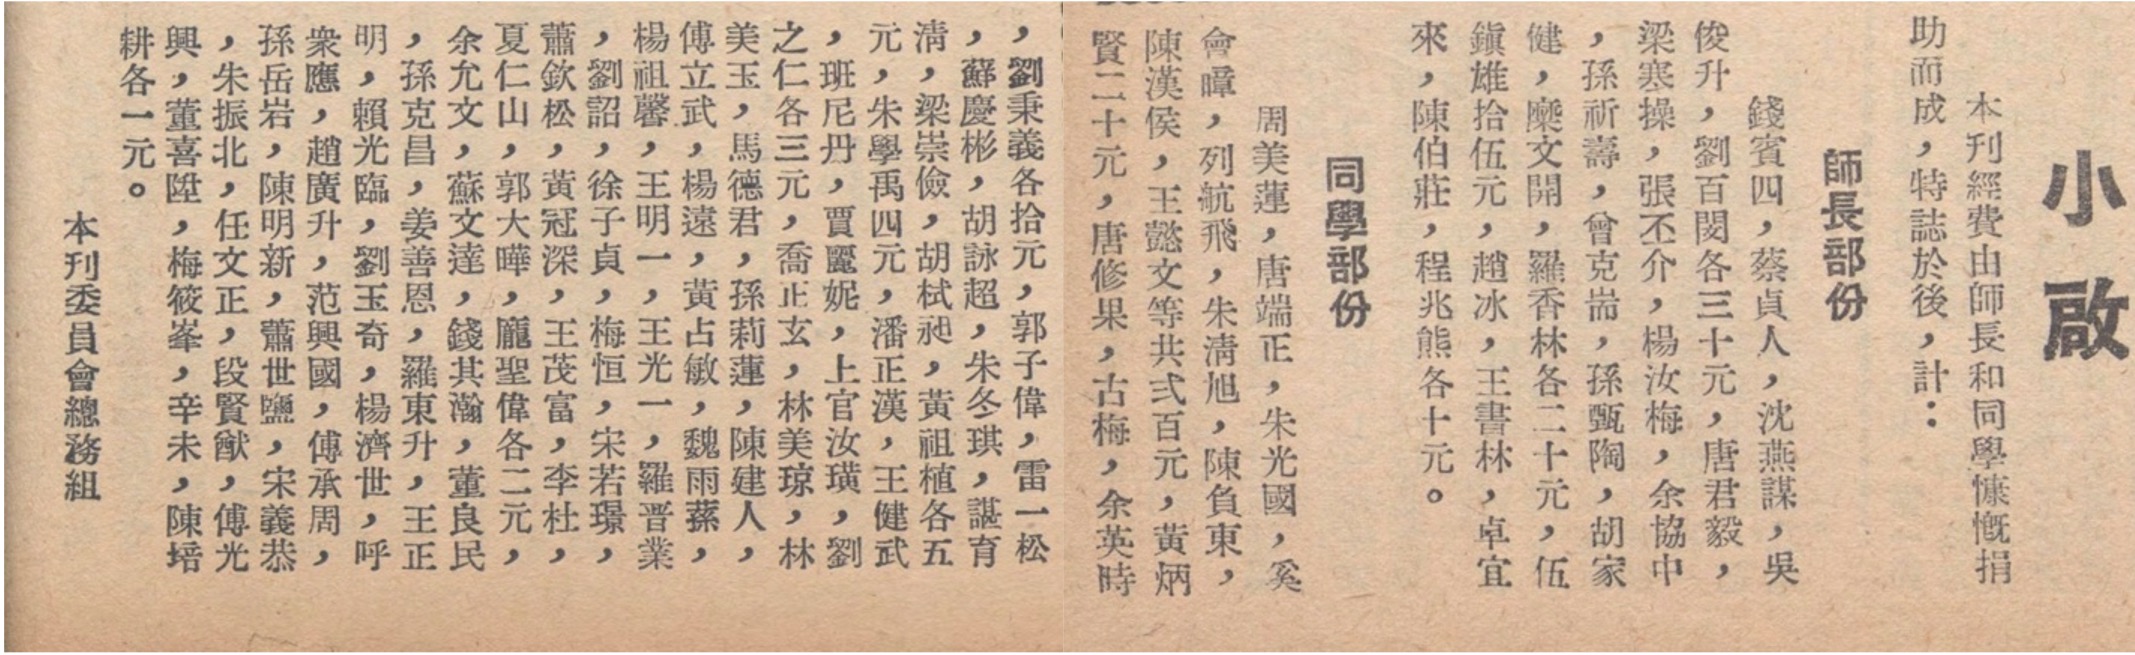 小啟
本刊經費由師長和同學慷慨捐
助而成，特誌於後，計：
師長部份
錢賓四，蔡貞人，沈燕謀，吳
俊升，劉百閔各三十元，唐君毅，
梁寒操，張丕介，楊汝梅，余協中
，孫祈壽，曾克耑，孫甄陶，胡家
健，糜文開，羅香林各二十元，伍
鎮雄拾伍元，趙冰，王書林，卓宜
來，陳伯莊，程兆熊各十元。
同學部份
周美蓮，唐端正，朱光國，奚
會暲，列航飛，朱清旭，陳負東，
陳漢侯，王懿文等共弍百元，黃炳
賢二十元，唐修果，古梅，余英時
，劉秉義各拾元，郭子偉，雷一松
，蘇慶彬，胡詠超，朱冬琪，諶育
清，梁崇儉，胡栻昶，黃祖植各五
元，朱學禹四元，潘正漢，王健武
，班尼丹，賈麗妮，上官汝璜，劉
之仁各三元，喬正玄，林美琼，林
美玉，馬德君，孫莉蓮，陳建人，
傅立武，楊遠，黃占敏，魏雨蓀，
楊祖馨，王明一，王光一，羅晋業
，劉詔，徐子貞，梅恒，宋若璟，
蕭欽松，黃冠深，王茂富，李杜，
夏仁山，郭大曄，龐聖偉各二元，
余允文，蘇文達，錢其瀚，董良民
，孫克昌，姜善恩，羅東升，王正
明，賴光臨，劉玉奇，楊濟世，呼
衆應，趙廣升，范興國，傅承周，
孫岳岩，陳明新，蕭世鹽，宋義恭
，朱振北，任文正，段賢猷，傅光
興，董喜陞，梅筱峯，辛未，陳培
耕各一元。
本刊委員會總務組